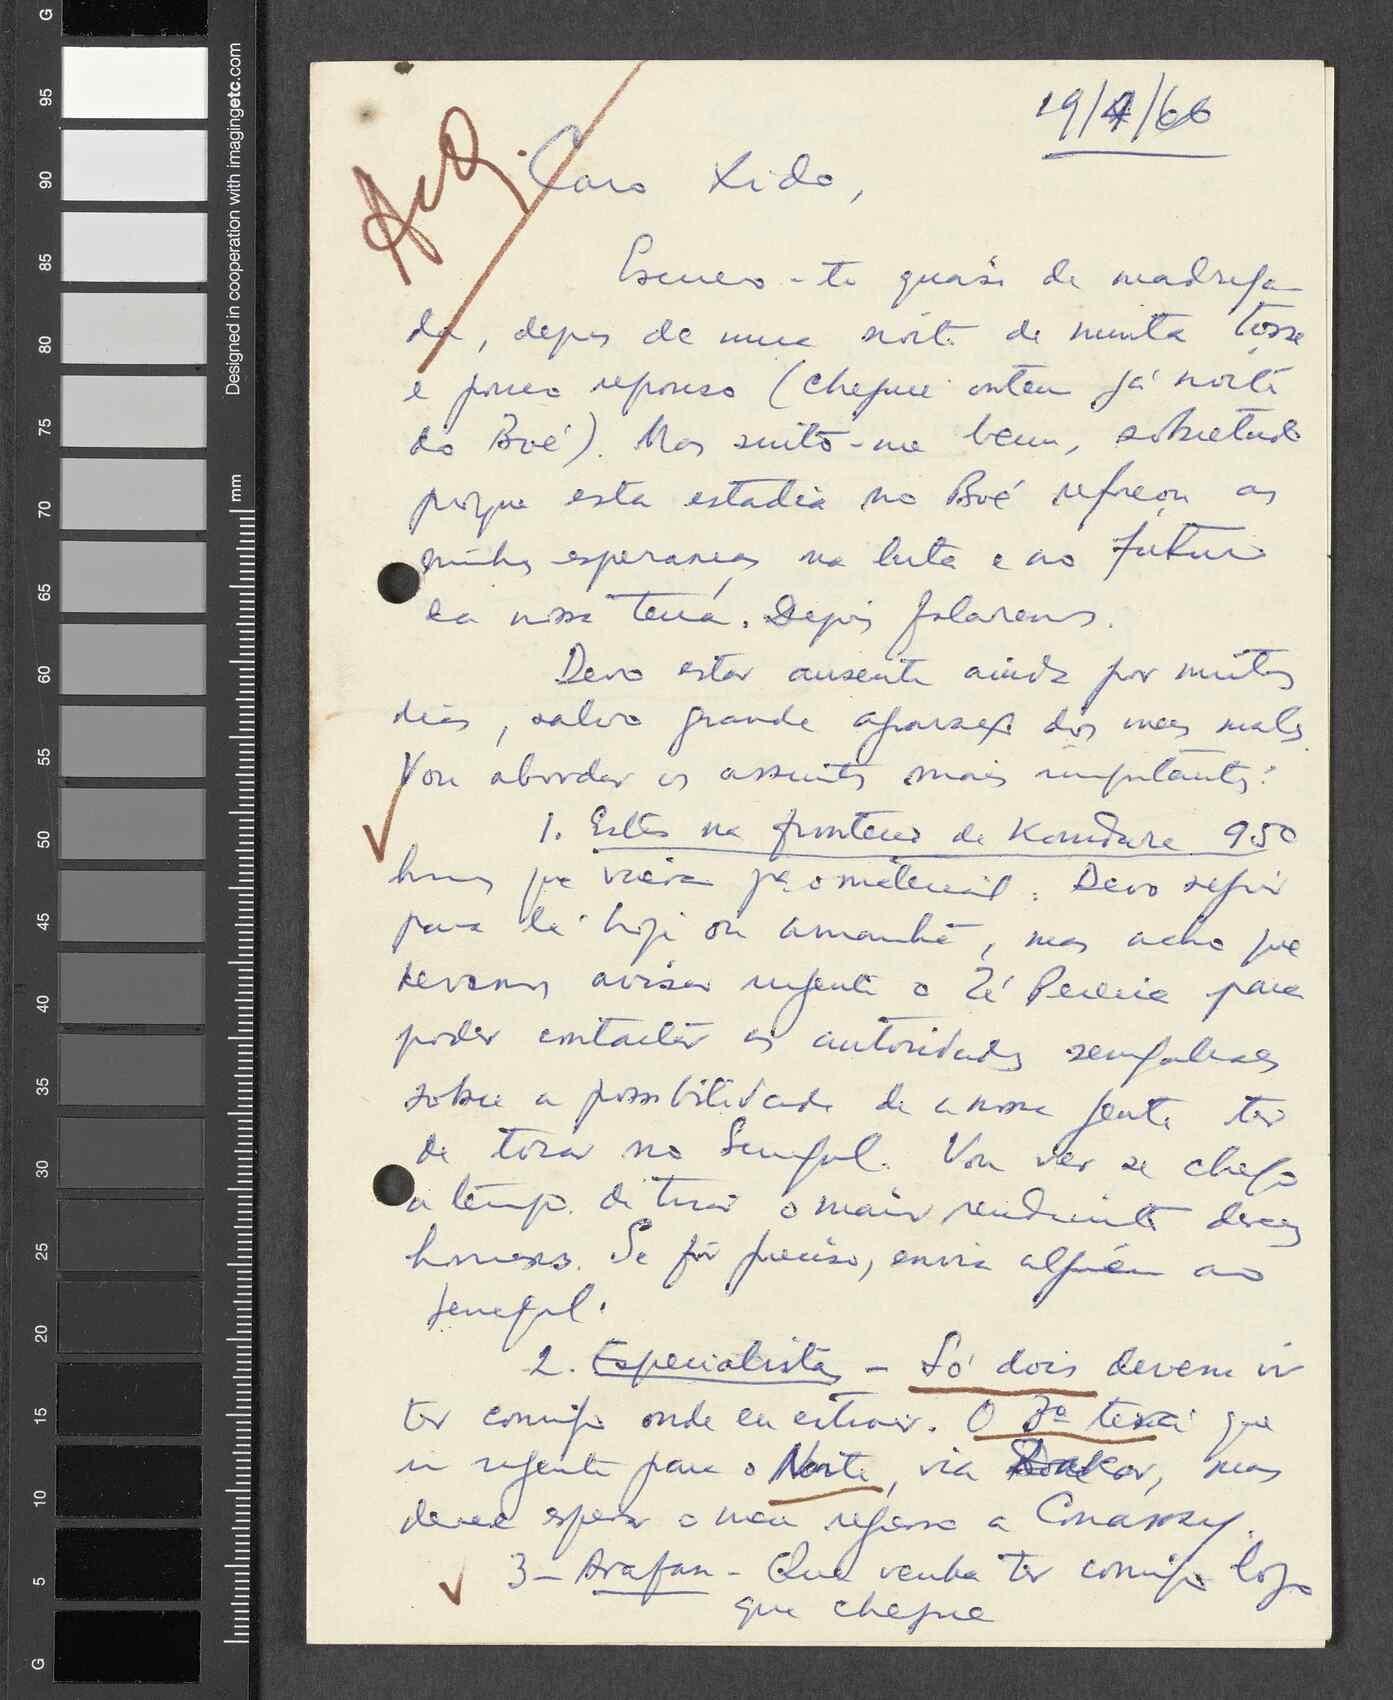 19/4/66
Arq.
Caro Xido,
Escrevo-te quási de madruga-
da, depois de uma noite de muita tosse
e pouco repouso (cheguei ontem já noite
do Boé). Mas sinto-me bem, sobretudo
porque esta estadia no Boé reforçou as
minhas esperanças na luta e no futuro
da nossa terra. Depois falaremos.
Devo estar ausente ainda por muitos
dias, salvo grande
dos meus males.
Vou abordar os assuntos mais importantes:
1. Estão na fronteira de Koundara 950
homens que vieram p/a o material. Devo seguir
para lá hoje ou amanhã, mas acho que
devemos avisar urgente o Zé Pereira para
poder contactar as autoridades senegalesas
sobre a possibilidade de a nossa gente ter
de tocar no Senegal. Vou ver se chego
a tempo de tirar o maior rendimento desses
homens. Se fôr preciso, envia alguém ao
Senegal.
2. Especialistas - Só dois devem vir
ter comigo onde eu estiver. O 3º terá que
ir urgente para o Norte, via Dakar, mas
deve esperar o meu regresso a Conakry.
3- Arafan - Que venha ter comigo logo
que chegue
Designed in cooperation with imagingetc.com
mm
G
95
90
85
80
75
70
65
60
55
50
45
40
35
30
25
20
15
10
5
G